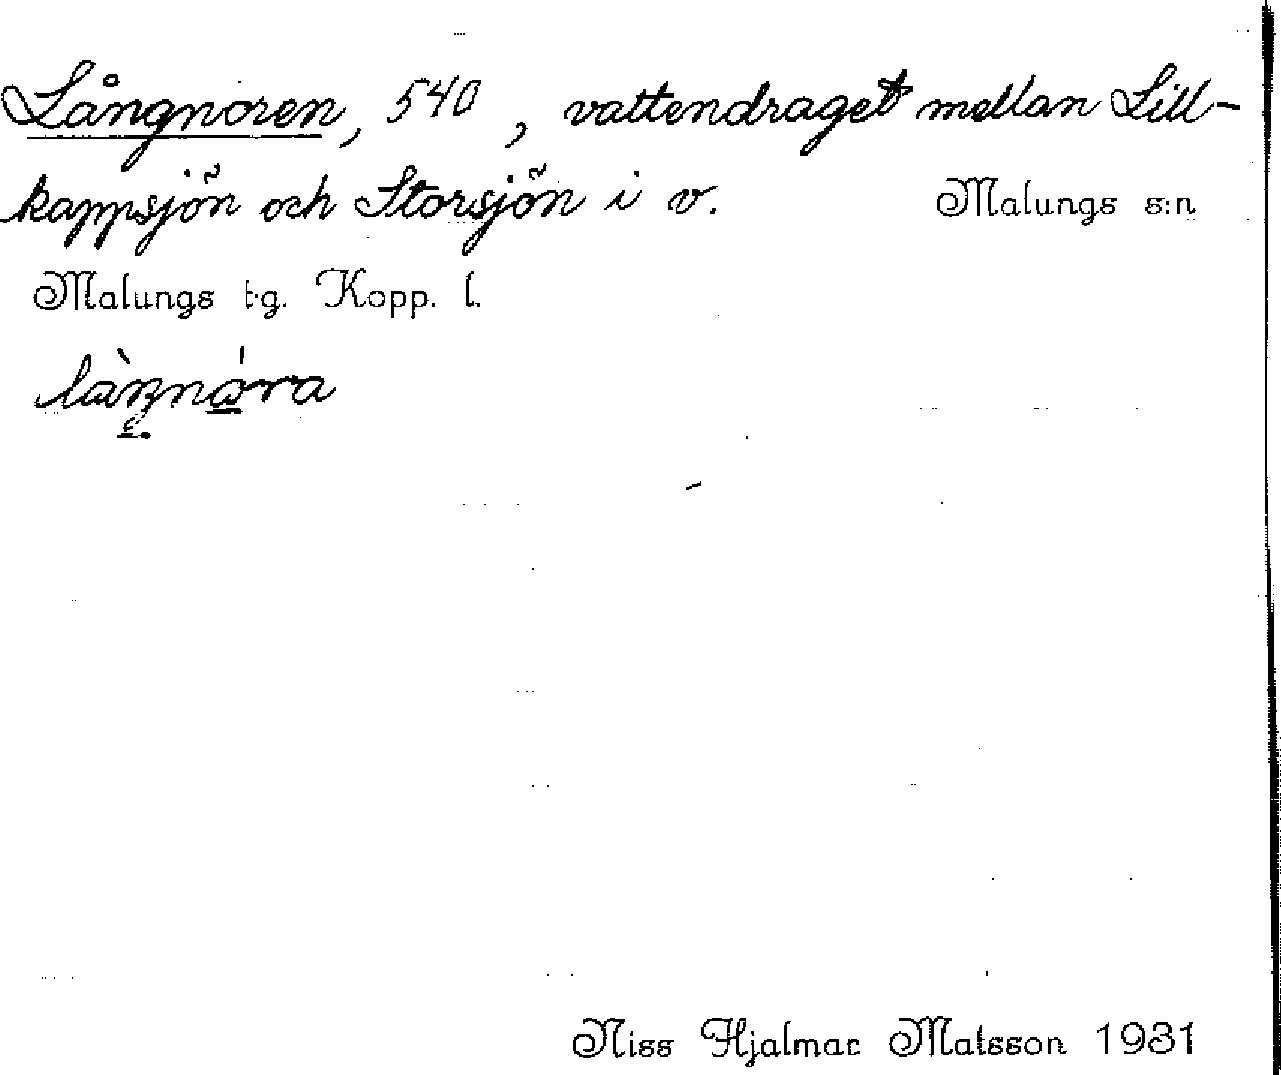 Långnoren, 540, vattendraget mellan Lill-
kappsjön och Storsjön i v. Malungs s:n
Malungs tg. Kopp. l.
Niss Hjalmar Matsson 1931